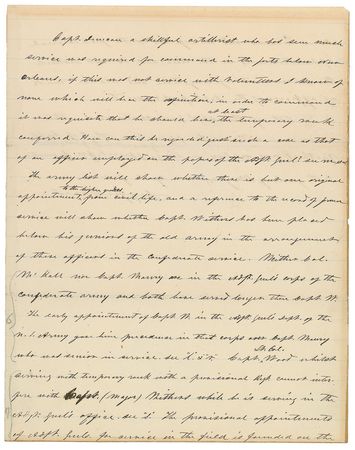 Capt. Duncan a skillful artillerist who has seen much
service was required for command in the forts below New
Orleans, if this was not service with Volunteers I know of
none which will bear the in order to command
at least
it was requisite that he should have, the temporary rank
conferred. How can this be regarded just such a case as that
of an officer employed on the papers of the Adjt. Genl.
The army list will show whether there is but one original
to the higher grades
appointment, from civil life, and a reference to the record of former
service will show whether Capt. Withers has been placed
below his juniors of the old army in the arrangement
of those officers in the Confederate service. Neither Col.
nor Capt. Maury are in the Adjt. Genl's corps of the
Confederate army and both have served longer than Capt. W.
The early appointment of Capt. W in the Adjt. Genl's Dept. of the
Army gave him precedence in that corps over Capt. Maury
Lt. Col.
who was senior in service. Capt. Wood whilst
serving with temporary rank with a provisional Regt cannot inter-
fere with Capt. (Major) Withers while he is serving in the
Adjt. Genl's office. The provisional appointments
of Adjt. Genls. for service in the field is founded on the